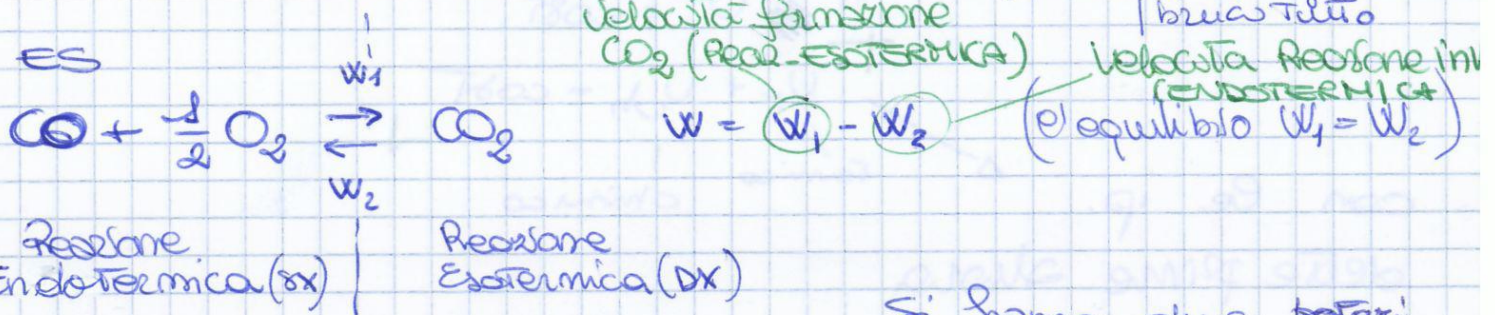 Velocità formazione
CO₂ (Reaz. ESOTERMICA)
brucio Tutto
Velocità Reazione inv
(ENDOTERMICA)
ES
W1
CO + 1/2 O₂ ⇄ CO₂
W2
W = W₁ - W₂
(e' equilibrio W₁ = W₂)
Reazione
EndoTermica (SX)
Reazione
EsoTermica (DX)
Si hanno due